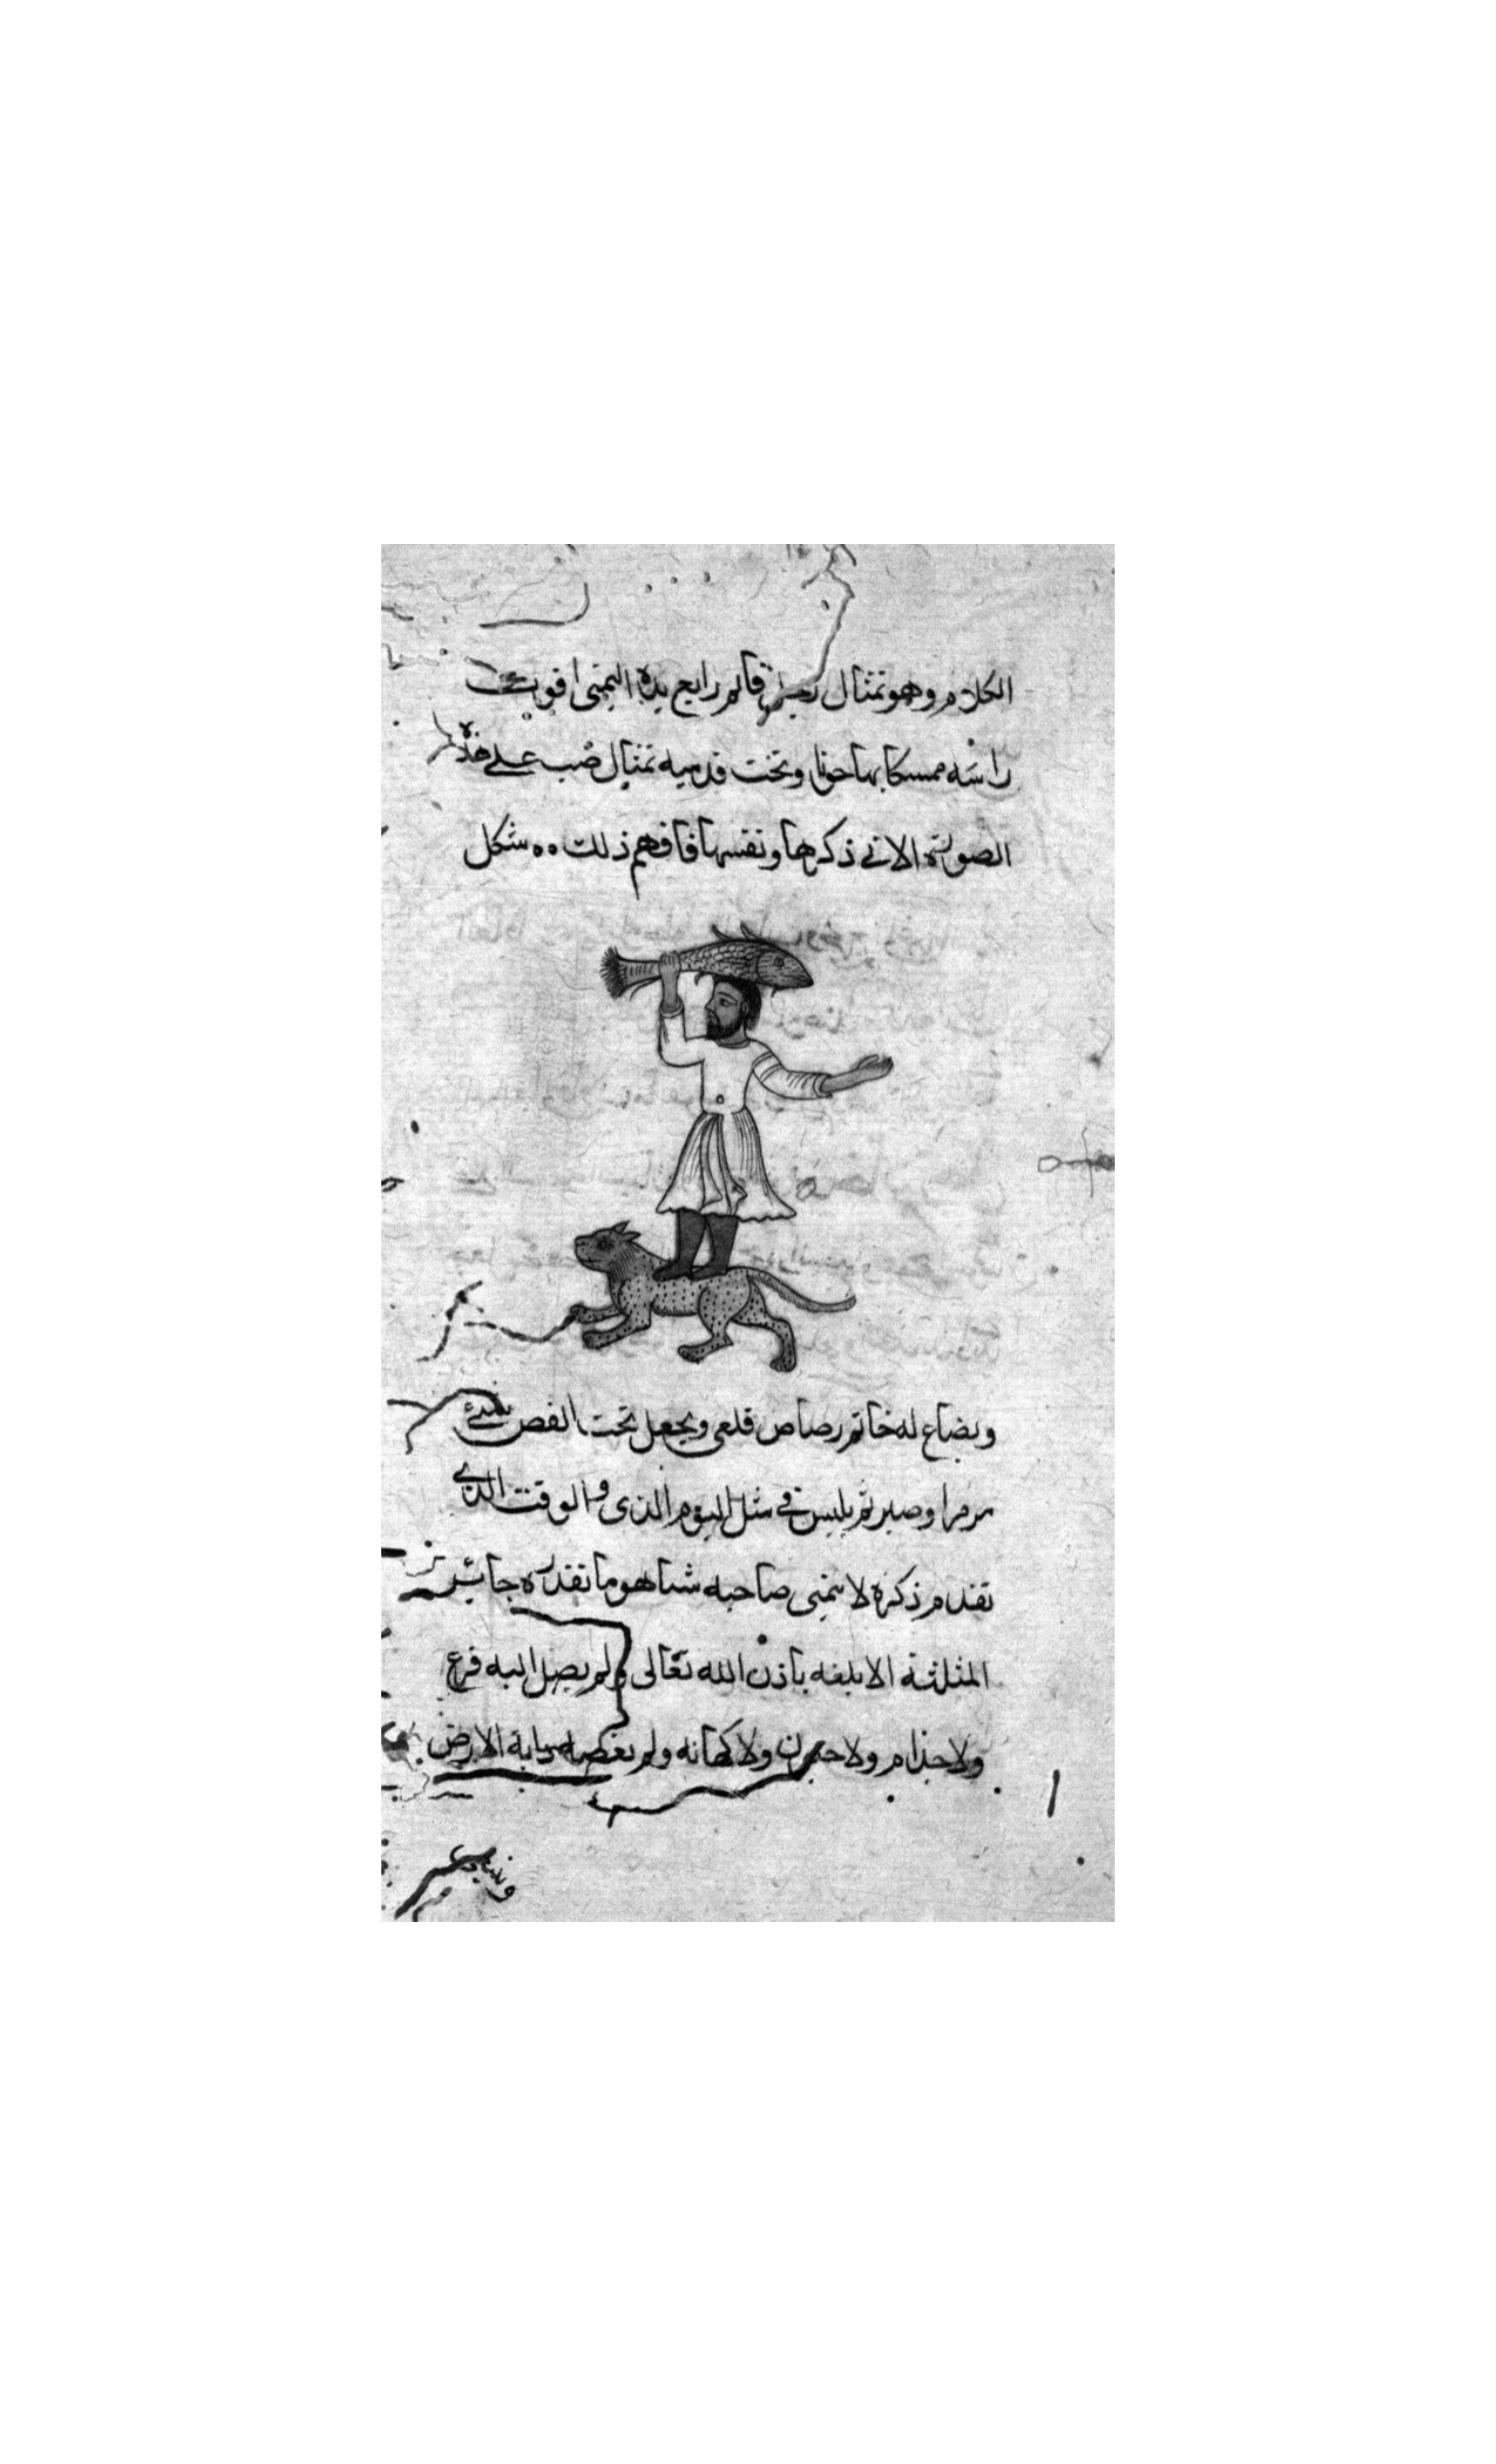 الكلام وهو تمثال رجل قائم رافع يده اليمنى فوق
راسه ممسكا بها حوتا وتحت قدميه تمثال ضب على هذه
الصورة الاتي ذكرها ونقشها فافهم ذلك ٥٥ شكل
ويصاع له خاتم رصاص قلعي ويجعل تحت الفص شيء
مر وصبر ثم يلبس في مثل اليوم الذي والوقت الذي
تقدم ذكره لا يتمنى صاحبه شيا هو ما تقدره
المثلثة الا بلغه باذن الله تعالى ولم يصل اليه فزع
ولا جذام ولا ولا كهانه ولم دابة الارض